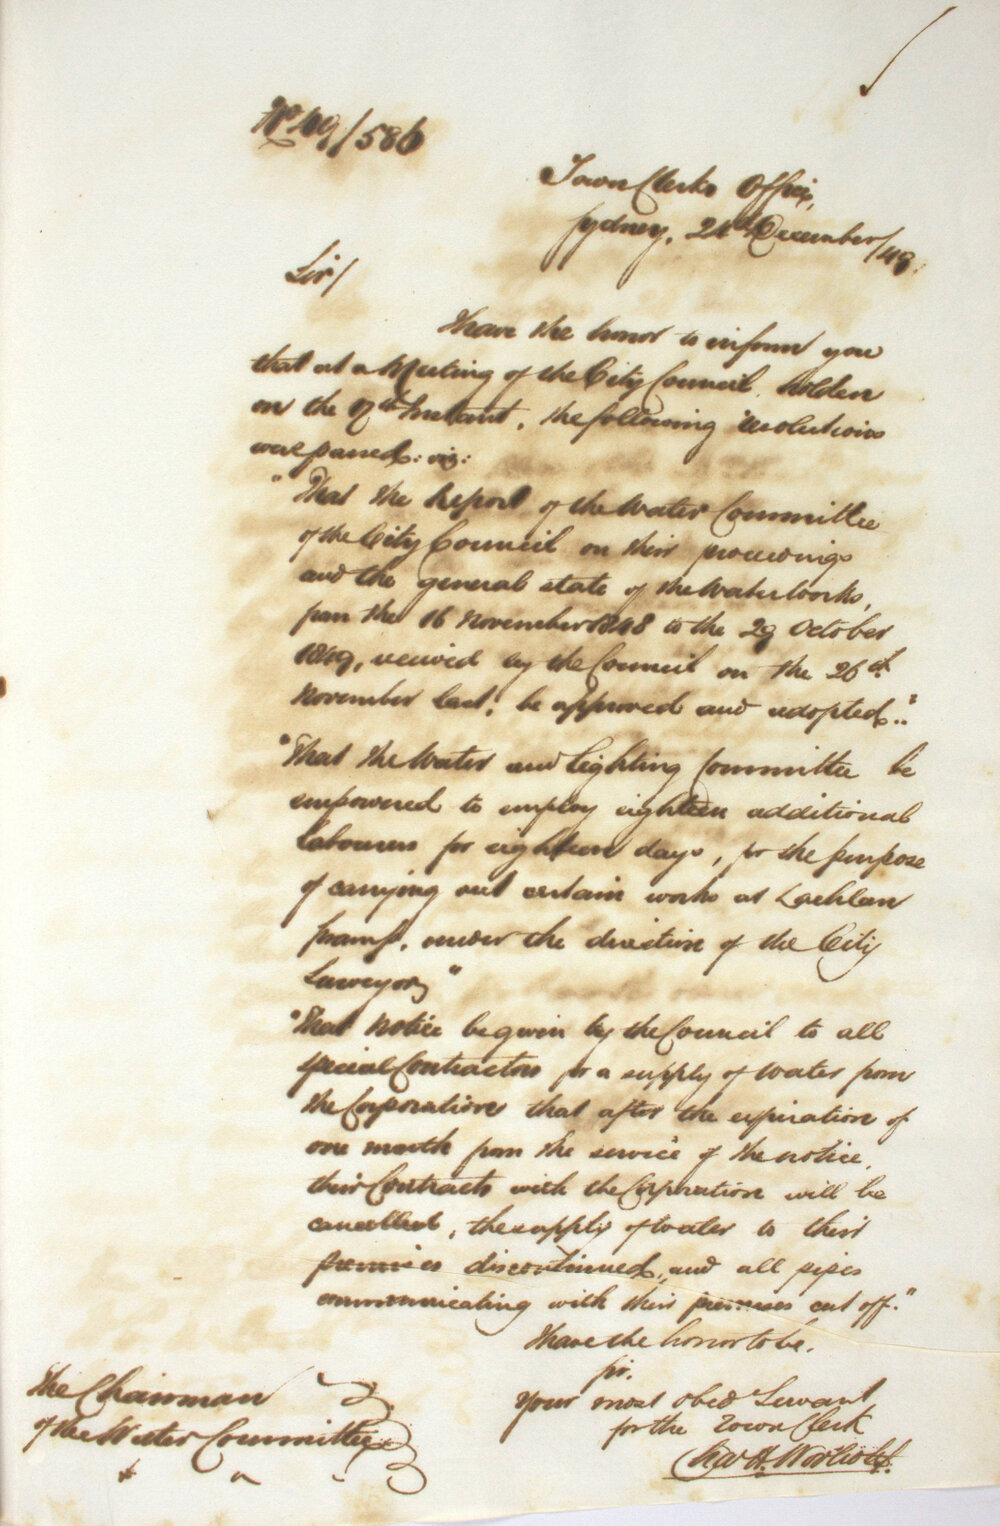 No 49/586
Town Clerks Office,
Sydney, 24th December/49.
Sir/
I have the honor to inform you
that at a Meeting of the City Council holden
on the 17th Instant, the following resolutions
were passed: viz:
"That the Report of the Water Committee
of the City Council on their proceedings
and the general state of the Water Works,
from the 16 November 1848 to the 29 October
1849, received by the Council on the 26th
November last, be approved and adopted."
"That the Water and Lighting Committee be
empowered to employ eighteen additional
labourers for eighteen days, for the purpose
of carrying out certain works at Lachlan
Swamp, under the direction of the City
Surveyor"
"That notice be given by the Council to all
special Contractors for a supply of Water from
the Corporation that after the expiration of
one month from the service of the notice,
their Contracts with the Corporation will be
cancelled, the supply of water to their
premises discontinued, and all pipes
communicating with their premises cut off."
I have the honor to be,
Sir,
Your most Obed Servant
for the Town Clerk
Chas H. Woolcott.
The Chairman
of the Water Committee